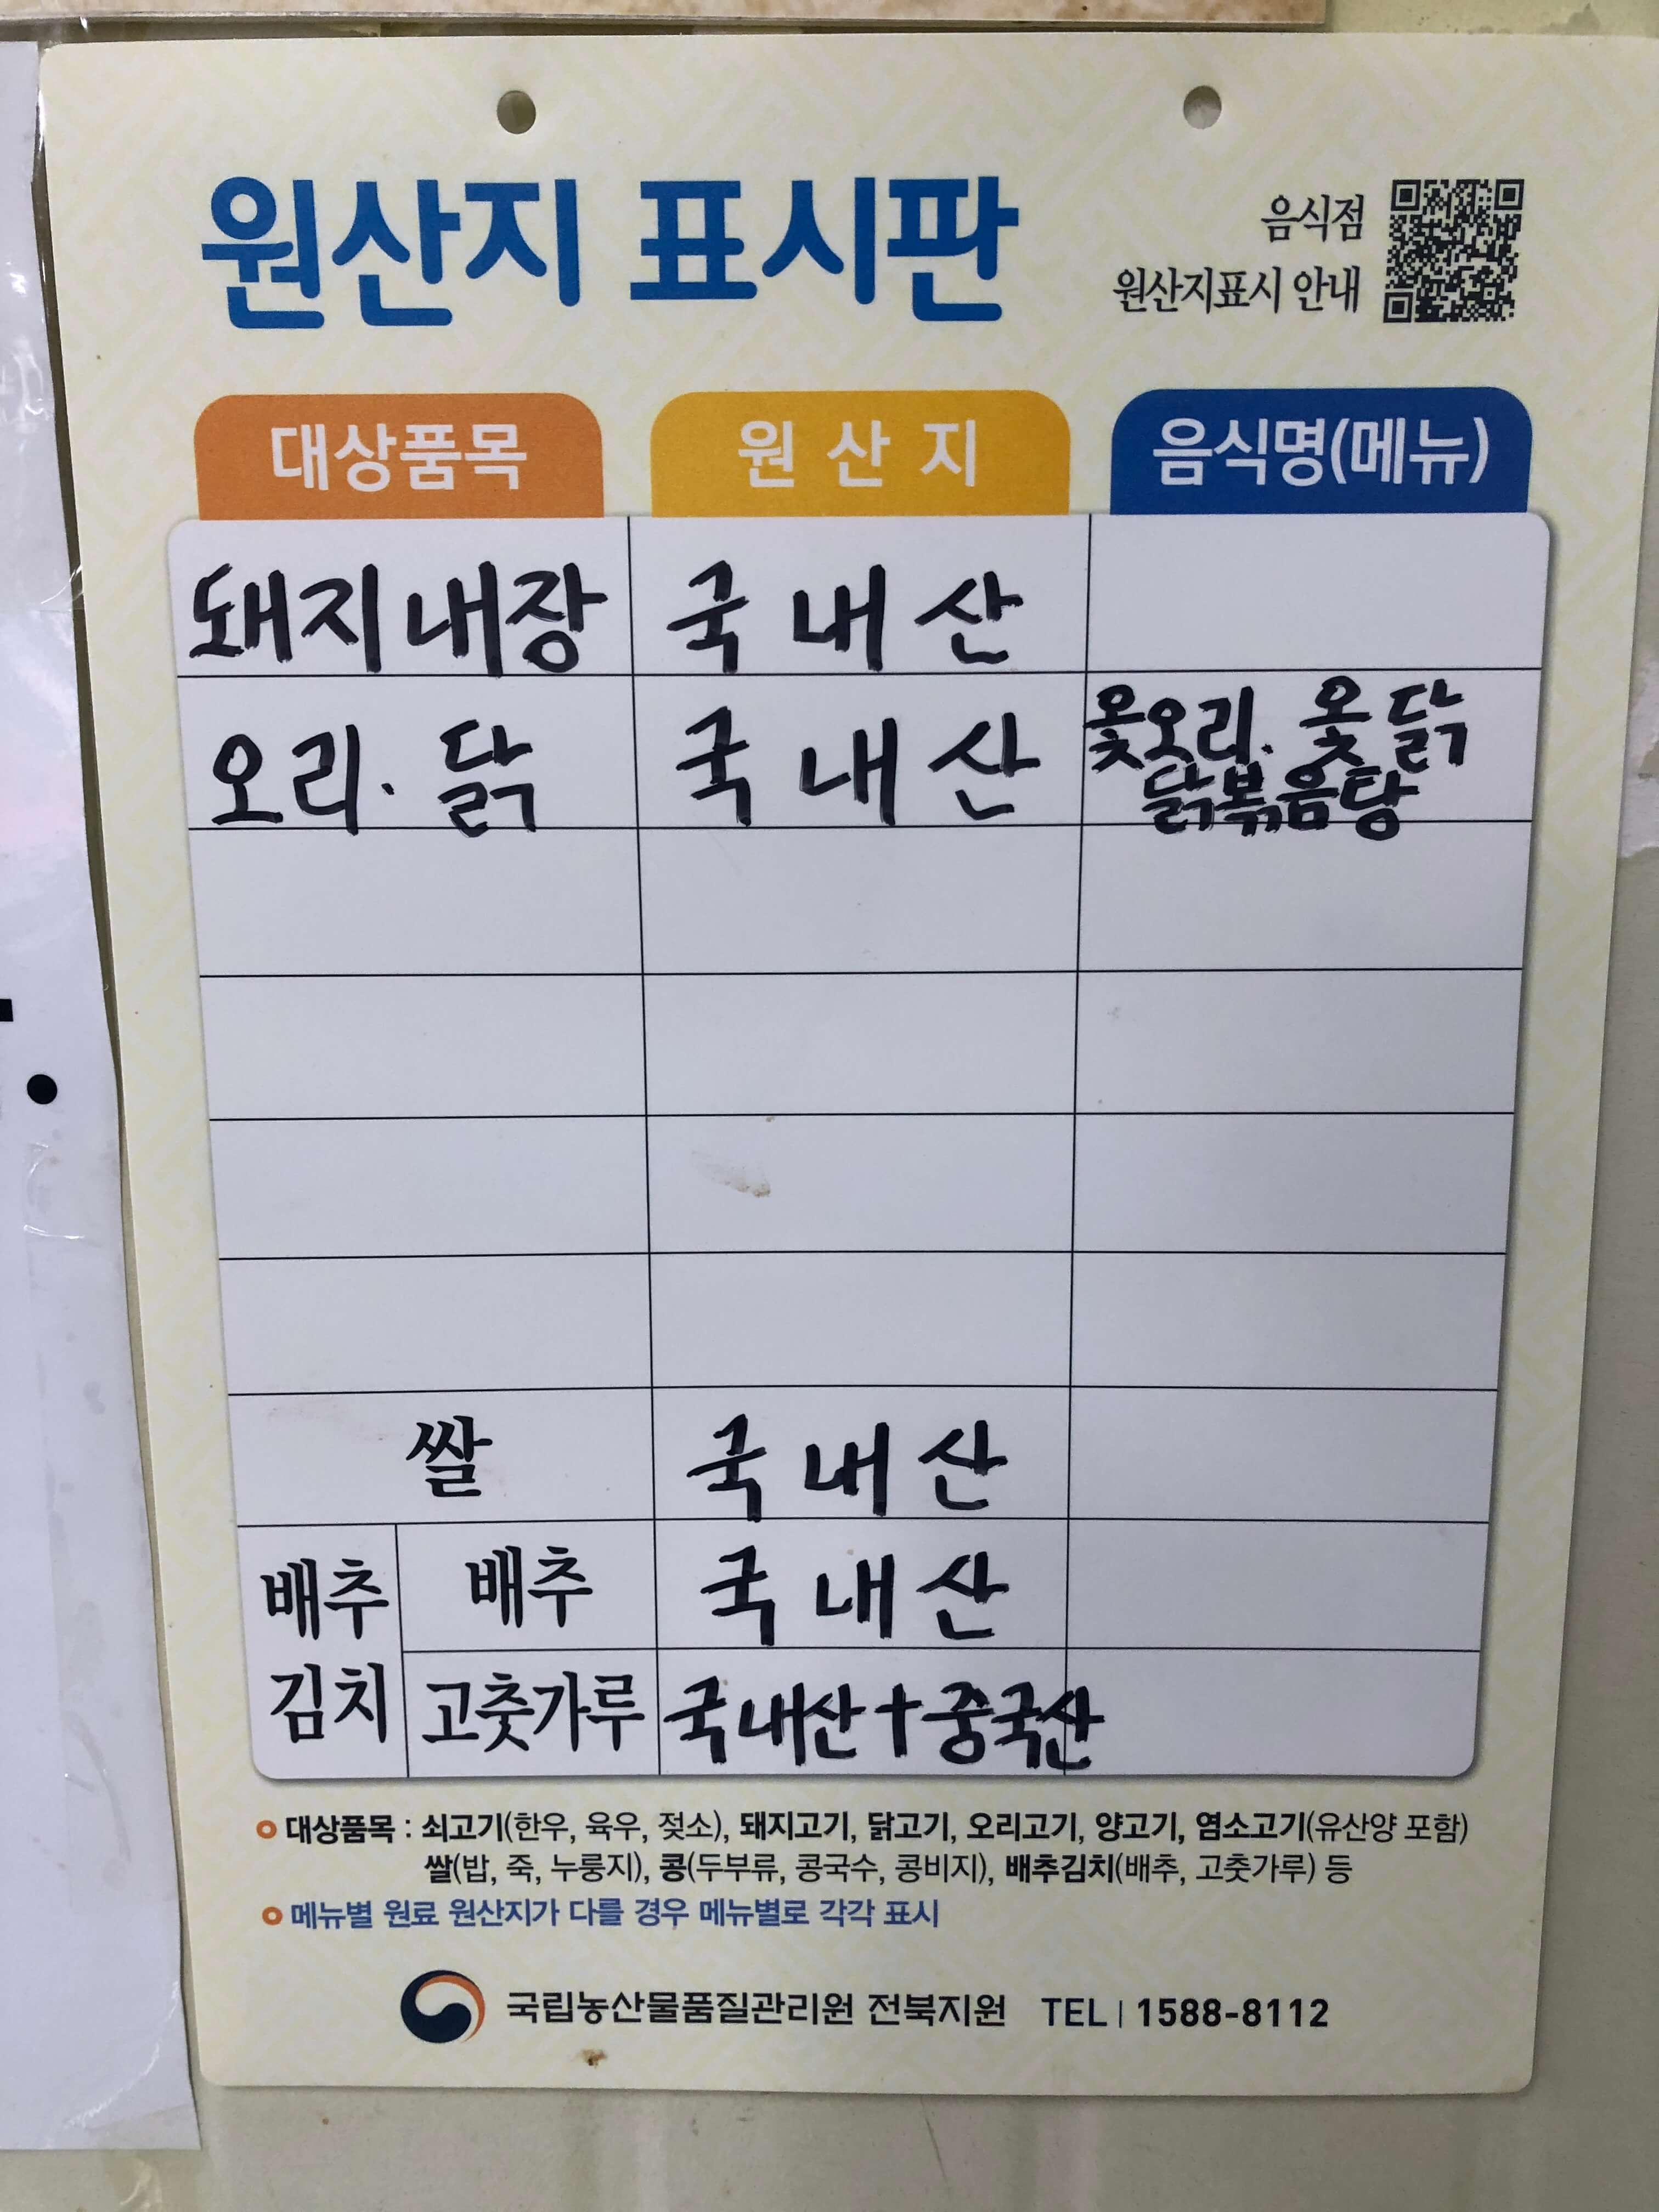 원산지 표시판
음식점
원산지표시 안내
대상품목 원 산 지 음식명(메뉴)
돼지내장 국내산
오리. 닭 국내산 옻오리. 옻닭
닭볶음탕
쌀 국내산
배추 배추 국내산
김치 고춧가루 국내산+중국산
대상품목 : 쇠고기(한우, 육우, 젖소), 돼지고기, 닭고기, 오리고기, 양고기, 염소고기(유산양 포함)
쌀(밥, 죽, 누룽지), 콩(두부류, 콩국수, 콩비지), 배추김치(배추, 고춧가루) 등
메뉴별 원료 원산지가 다를 경우 메뉴별로 각각 표시
국립농산물품질관리원 전북지원 TEL | 1588-8112